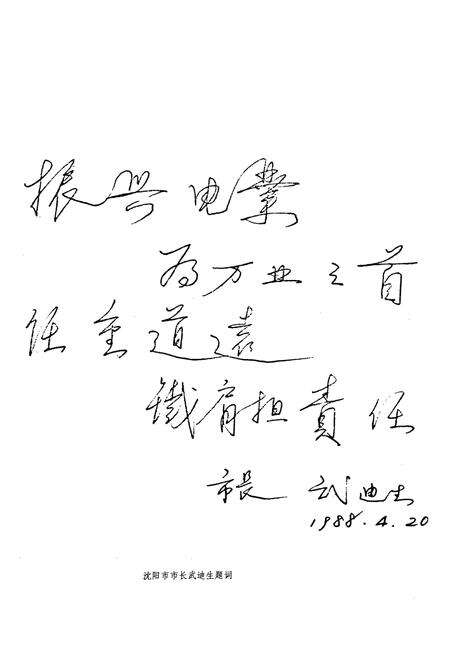 振兴电業
为万业之首
任重道远
鐵肩担責任
市長 武迪生
1988.4.20
沈阳市市长武迪生题词